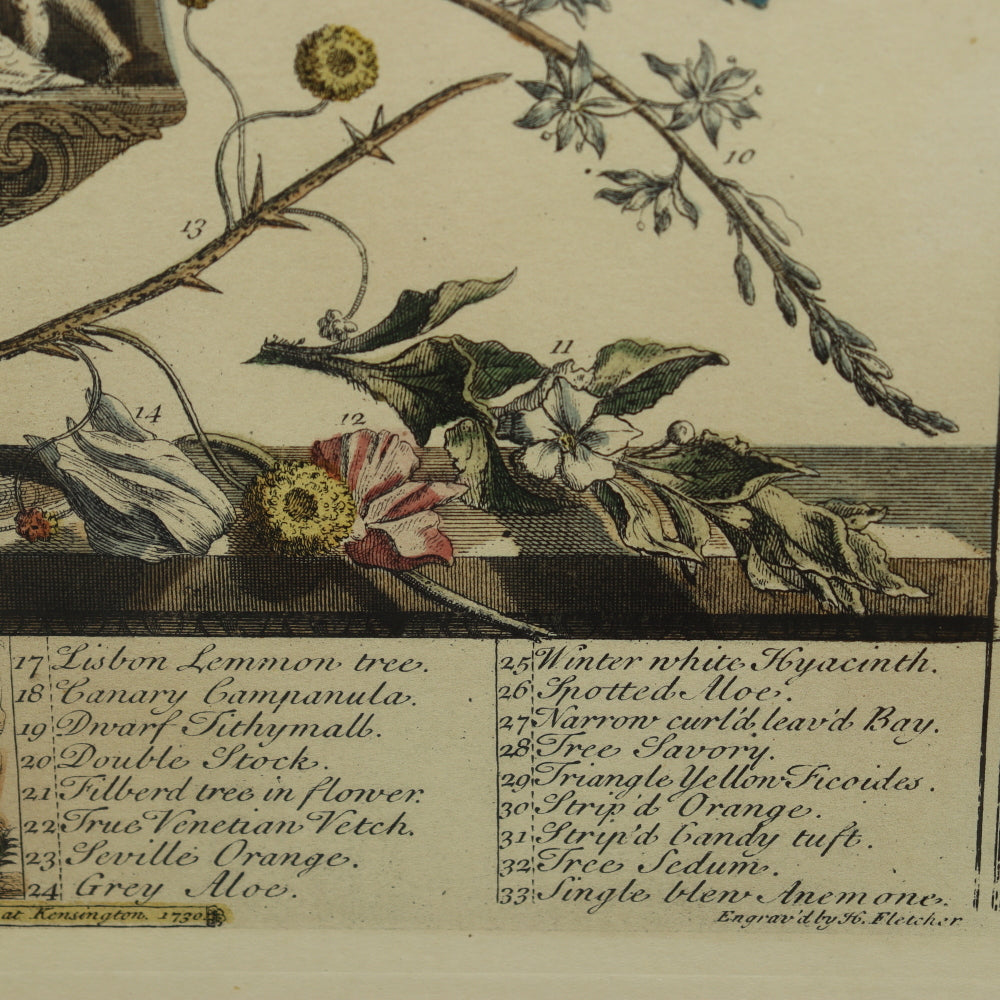 10
13
11
14
12
17 Lisbon Lemmon tree.
18 Canary Campanula.
19 Dwarf Tithymall.
20 Double Stock.
21 Filberd tree in flower.
22 True Venetian Vetch.
23 Seville Orange.
24 Grey Aloe.
25 Winter white Hyacinth.
26 Spotted Aloe.
27 Narrow curl'd leav'd Bay.
28 Tree Savory.
29 Triangle Yellow Ficoides.
30 Strip'd Orange.
31 Strip'd Candy tuft.
32 Tree Sedum.
33 Single blew Anemone.
at Kensington. 1730
Engrav'd by H. Fletcher